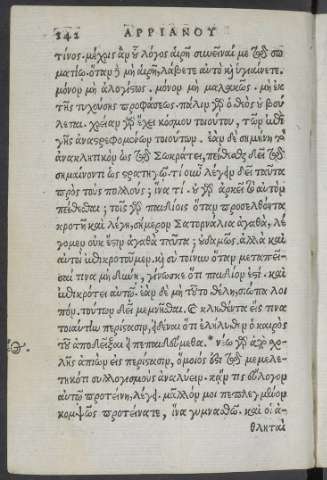 342 ΑΡΡΙΑΝΟΥ
τίνος. μέχρις ἂν ὁ λόγος αἱρῇ συνεῖναί με τῷ σω
ματίῳ. ὅταν δὲ μὴ αἱρῇ, λάβετε αὐτὸ κỳ ὑγιαίνετε.
μόνον μὴ ἀλογίστως. μόνον μὴ μαλακῶς. μὴ ἐκ
τῆς τυχούσης προφάσεως. πάλιν γὰρ ὁ θεὸς οὐ βού
λεται. χρείαν γὰρ ἔχει κόσμου τοιούτου, τῶν ἐπὶ
γῆς ἀναστρεφομένων τοιούτων. ἐὰν δὲ σημήνῃ τὸ
ἀνακλητικὸν ὡς τῷ Σωκράτει, πείθεσθαι δεῖ τῷ
σημαίνοντι ὡς στρατηγῷ. τί οὖν λέγειν δεῖ ταῦτα
πρὸς τοὺς πολλούς; ἵνα τί. οὐ γὰρ ἀρκεῖ τὸ αὐτὸν
πείθεσθαι; τοῖς γὰρ παιδίοις ὅταν προσελθόντα
κροτῇ καὶ λέγῃ, σήμερον Σατορνάλια ἀγαθὰ, λέ
γομεν οὐκ ἔστιν ἀγαθὰ ταῦτα; οὐδαμῶς. ἀλλὰ καὶ
αὐτοὶ ἐπικροτοῦμεν. κỳ σὺ τοίνυν ὅταν μεταπεῖ-
σαί τινα μὴ δύνῃ, γίνωσκε ὅτι παιδίον ἐστὶ. καὶ
ἐπικρότει αὐτῷ. ἐὰν δὲ μὴ τοῦτο θέλῃς, σιώπα λοι
πόν. τούτων δεῖ μεμνῆσθαι. καὶ κληθέντα εἴς τινα
τοιαύτην περίστασιν, εἰδέναι ὅτι ἐλήλυθεν ὁ καιρὸς
τοῦ ἀποδεῖξαι εἰ πεπαιδεύμεθα. * νέος γὰρ ἀπὸ σχο-
λῆς ἀπιὼν εἰς περίστασιν, ὅμοιός ἐστι τῷ μεμελε-
τηκότι συλλογισμοὺς ἀναλύειν. κἄν τις εὔλυτον
αὐτῷ προτείνῃ, λέγει. μᾶλλόν μοι πεπλεγμένον
κομψῶς προτείνατε, ἵνα γυμνασθῶ. καὶ οἱ ἀ-
θληταὶ